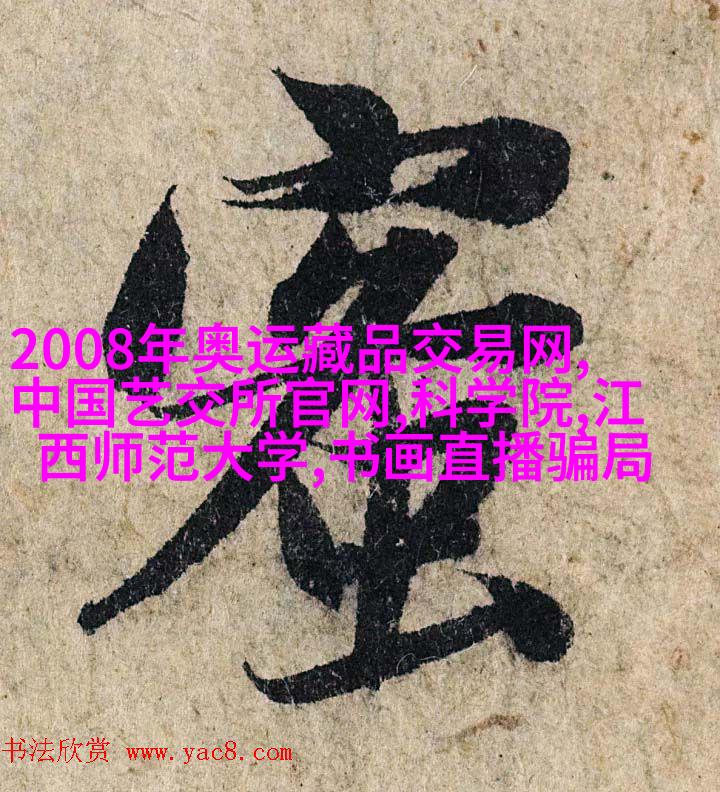 2008年奥运藏品交易网,
中国艺交所官网,科学院,江
西师范大学,书画直播骗局
书法欣赏 www.yac8.com